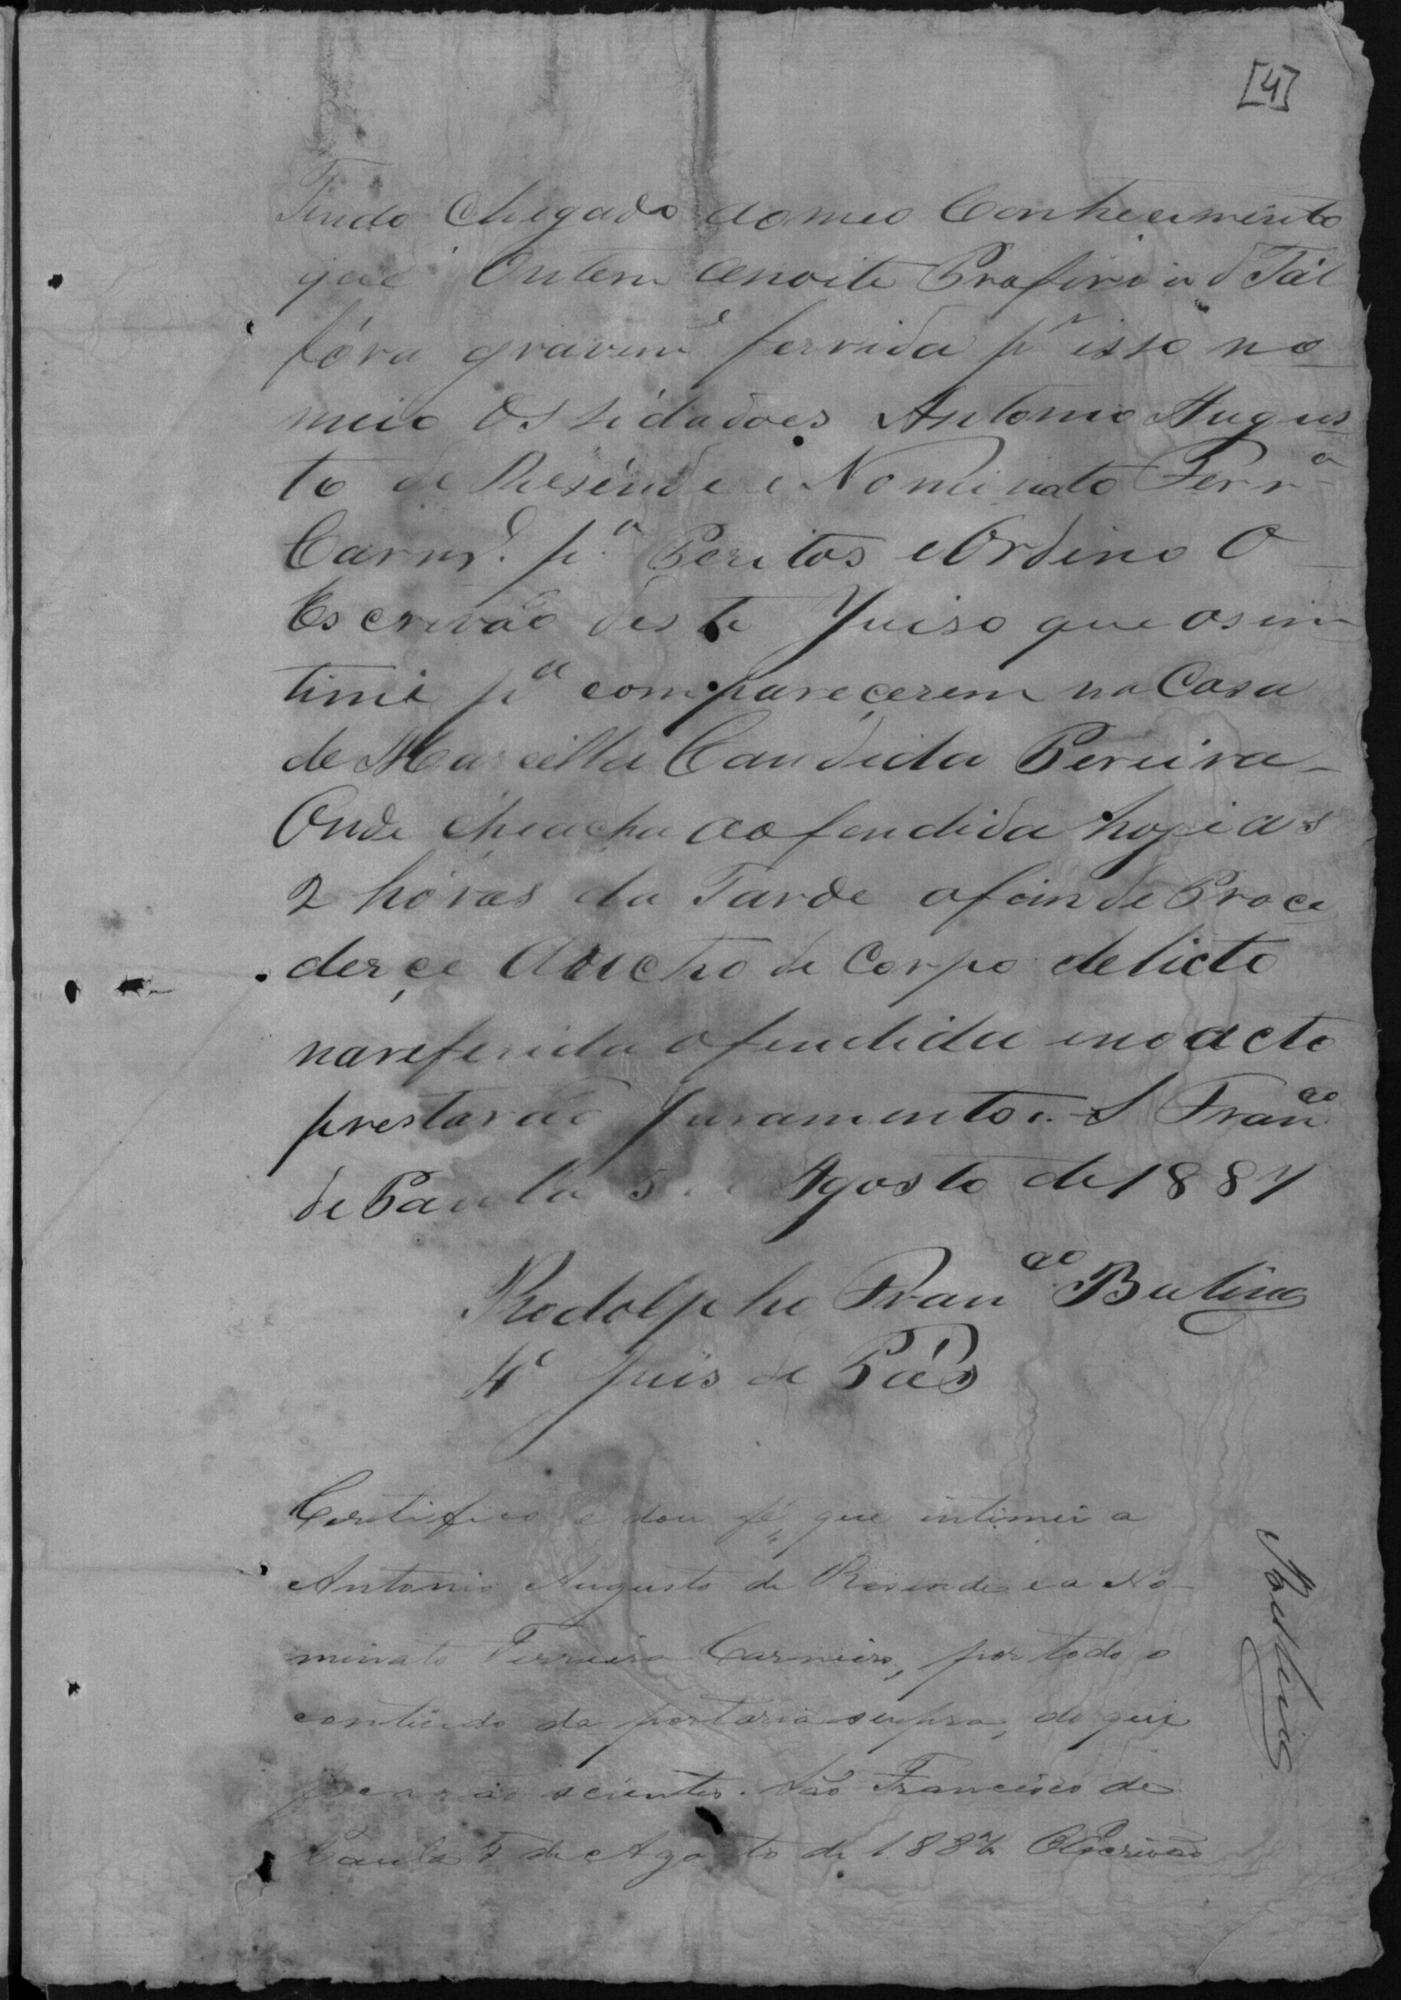 [4]
Tendo Chegado ao meo Conhecimento
que Ontem anoite Profiria d Tál
fóra gravem.e ferrida p.r isso no
meio Os Sidadoes Antonio Augus
to de Resende e Nominato Ferr.a
Carnr.o p.a Peritos e Ordino O
Escrivão deste Juiso que os in
time p.a comparecerem na Casa
de Marcilha Candida Pereira
Onde cheacha aofendida hoje as
2 hóras da Tarde afim de Proce
derçe Auctro de Corpo delicto
nareferida ofendida enoacto
prestarão Juramento. S Fran.co
de Paula 5 de Agosto de 1887
Rodolpho Fran.co Bulino
4º Juis de Pás
Certifico e dou fé, que intimei a
Antonio Augusto de Resende e a No-
minato Ferreira Carneiro, por todo o
contiudo da portaria supra, do que
ficarão scientes. São Francisco de
Paula 5 de Agosto de 1887 OEscrivão